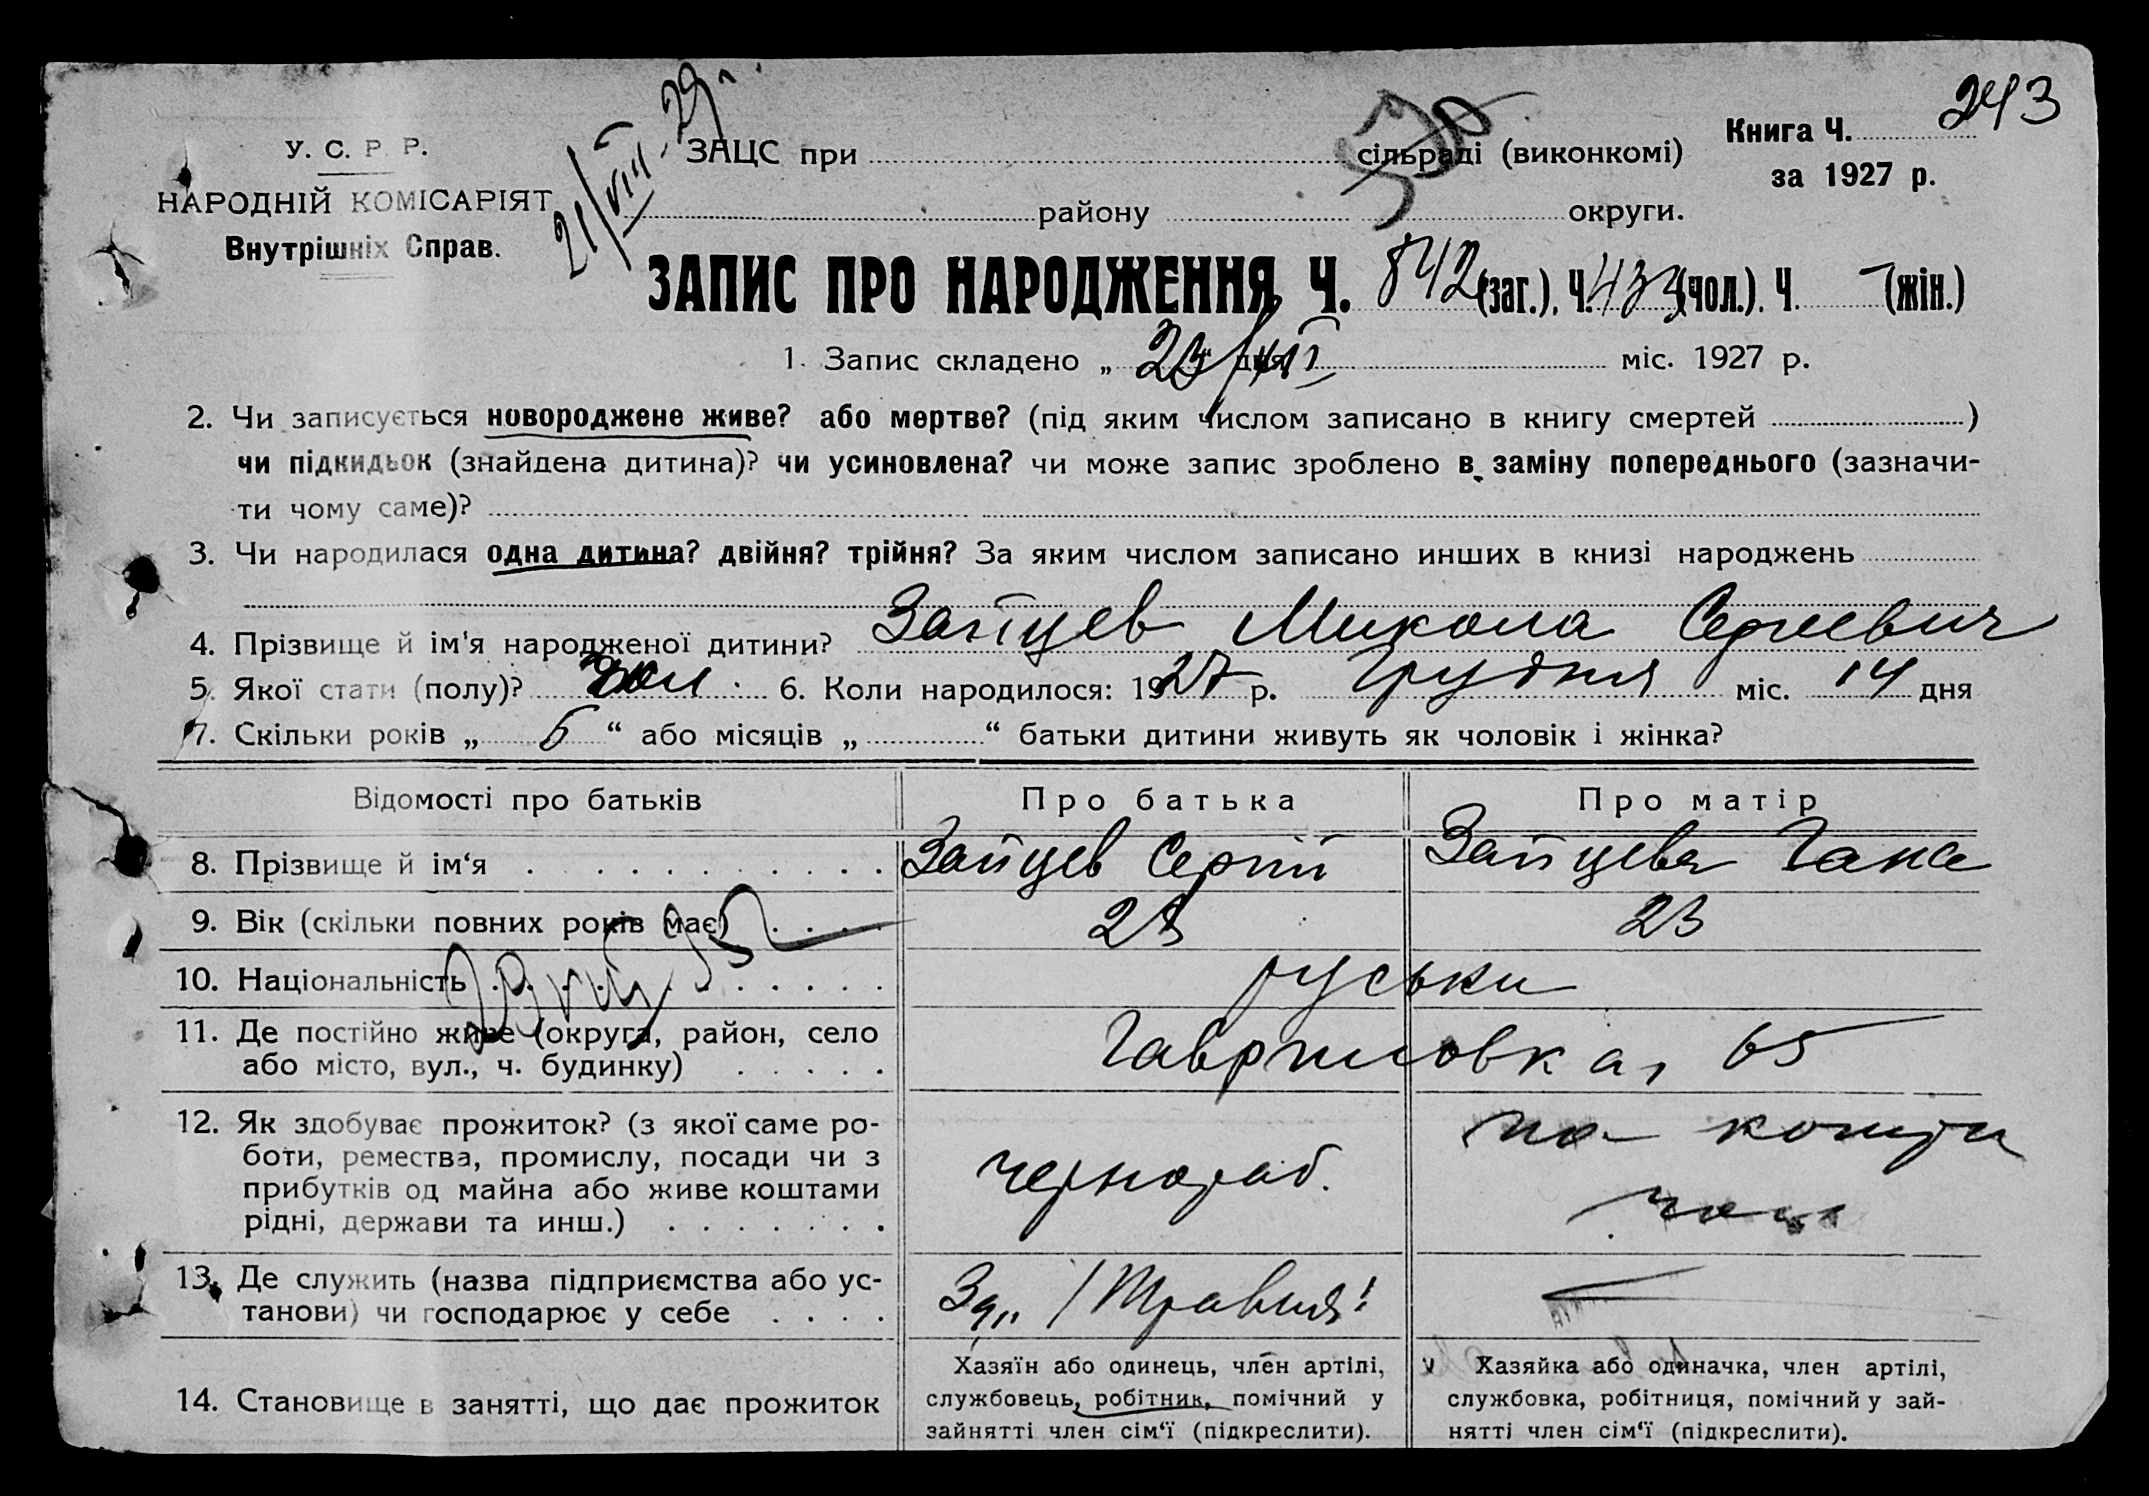 243
21/VIII-29 г.
У. С. Р. Р.
НАРОДНІЙ КОМІСАРІЯТ
Внутрішніх Справ.
ЗАЦС при сільраді (виконкомі)
району округи.
Книга Ч.
за 1927 р.
ЗАПИС ПРО НАРОДЖЕННЯ Ч. 842 (заг.), Ч. 433 (чол.), Ч. – (жін.)
1. Запис складено „ 23/XII “ дня міс. 1927 р.
2. Чи записується новороджене живе? або мертве? (під яким числом записано в книгу смертей )
чи підкидьок (знайдена дитина)? чи усиновлена? чи може запис зроблено в заміну попереднього (зазначи-
ти чому саме)?
3. Чи народилася одна дитина? двійня? трійня? За яким числом записано инших в книзі народжень
4. Прізвище й ім'я народженої дитини? Зайцев Микола Сергеевич
5. Якої стати (полу)? чол. 6. Коли народилося: 1927 р. Грудня міс. 14 дня
7. Скільки років „ 5 “ або місяців „ “ батьки дитини живуть як чоловік і жінка?
Відомості про батьків Про батька Про матір
8. Прізвище й ім‘я Зайцев Сергій Зайцева Ганна
9. Вік (скільки повних років має) 23
10. Національність руськи
11. Де постійно живе (округа, район, село
або місто, вул., ч. будинку) Гавриловка, 65
12. Як здобуває прожиток? (з якої саме ро-
боти, ремества, промислу, посади чи з
прибутків од майна або живе коштами
рідні, держави та инш.) чернораб. на кошти
13. Де служить (назва підприємства або ус-
танови) чи господарює у себе Зд. 1 Травня!
14. Становище в занятті, що дає прожиток
Хазяїн або одинець, член артілі,
службовець, робітник, помічний у
зайнятті член сім‘ї (підкреслити).
Хазяйка або одиначка, член артілі,
службовка, робітниця, помічний у зай-
нятті член сім‘ї (підкреслити).